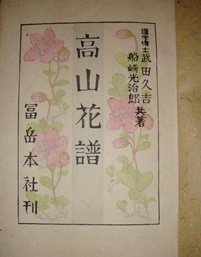 理学博士 武田久吉
船崎光治郎 共著
高山花譜
冨岳本社刊